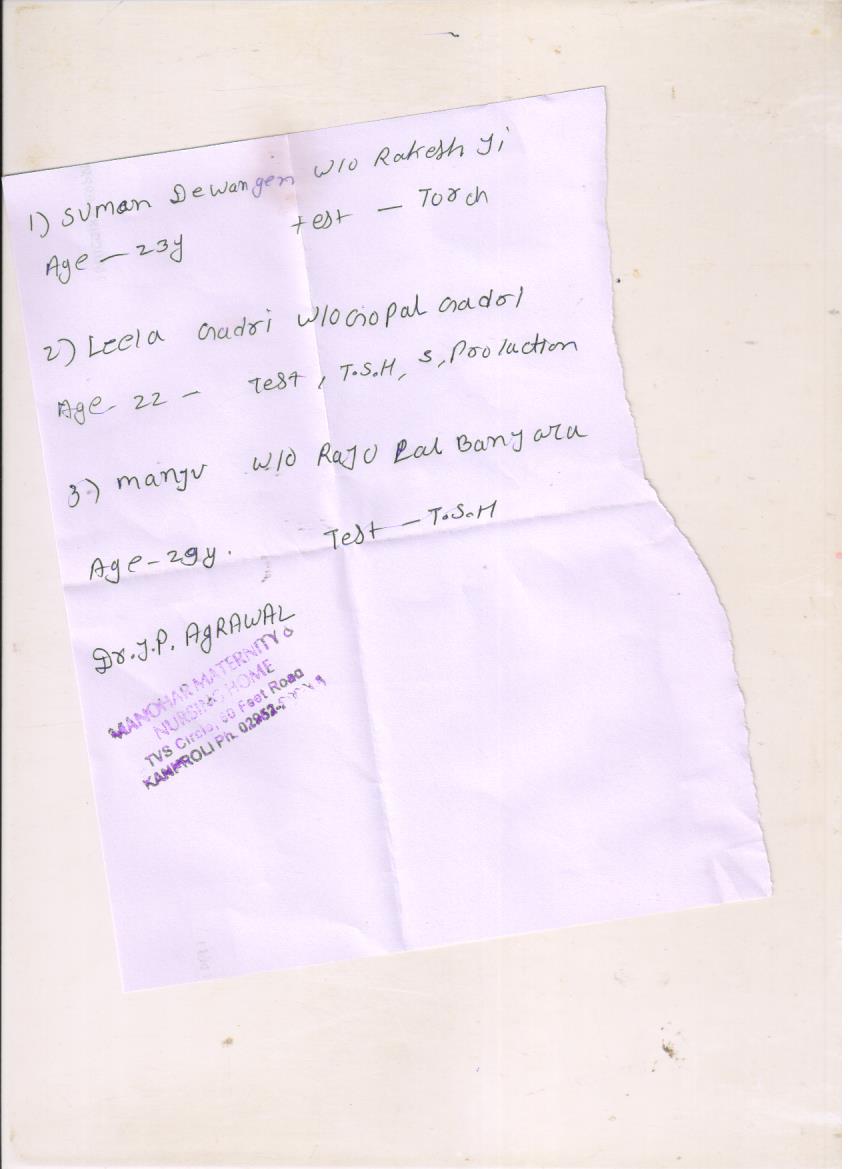 1) Suman Dewangen W/O Rakesh Ji
Age - 23y test - Torch
2) Leela Gadri W/O Gopal Gadri
Age 22 - Test, T.S.H, S, Prolaction
3) manju W/O RaJU Lal Banjara
Age - 29y. Test - T.S.H
Dr. J.P. AgRAWAL
MANOHAR MATERNITY &
NURSING HOME
TVS Circle, 60 Feet Road
KANKROLI Ph. 02952-